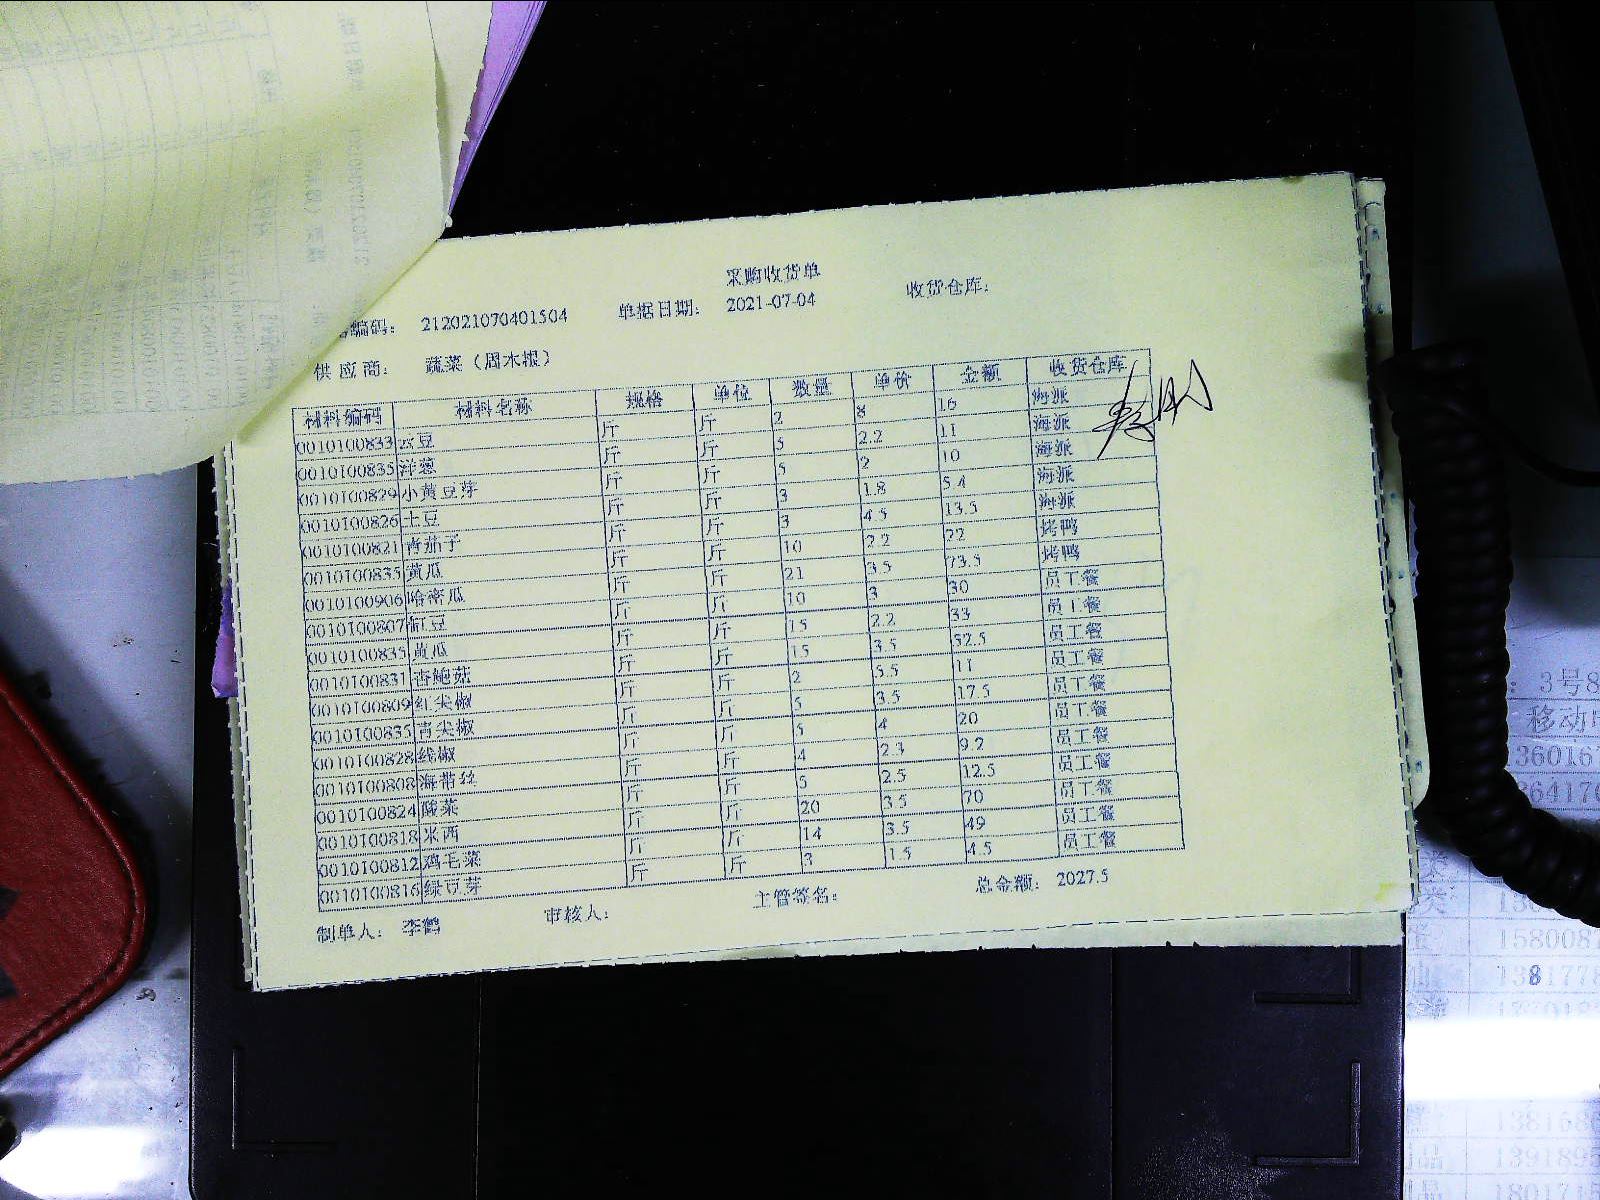 采购收货单
编码： 212021070401504 单据日期： 2021-07-04 收货仓库：
供应商： 蔬菜（周木根）
材料编码 材料名称 规格 单位 数量 单价 金额 收货仓库
0010100833 豆 斤 斤 2 8 16 海派
0010100835 洋葱 斤 斤 5 2.2 11 海派
0010100829 小黄豆芽 斤 斤 5 2 10 海派
0010100826 土豆 斤 斤 3 1.8 5.4 海派
0010100821 青茄子 斤 斤 3 4.5 13.5 海派
0010100835 黄瓜 斤 斤 10 2.2 22 烤鸭
0010100906 哈密瓜 斤 斤 21 3.5 73.5 烤鸭
0010100807 豇豆 斤 斤 10 3 30 员工餐
0010100835 黄瓜 斤 斤 15 2.2 33 员工餐
0010100831 杏鲍菇 斤 斤 15 3.5 52.5 员工餐
0010100809 红尖椒 斤 斤 2 5.5 11 员工餐
0010100835 青尖椒 斤 斤 5 3.5 17.5 员工餐
0010100828 线椒 斤 斤 5 4 20 员工餐
0010100808 海带丝 斤 斤 4 2.3 9.2 员工餐
0010100824 酸菜 斤 斤 5 2.5 12.5 员工餐
0010100818 米西 斤 斤 20 3.5 70 员工餐
0010100812 鸡毛菜 斤 斤 14 3.5 49 员工餐
0010100816 绿豆芽 斤 斤 3 1.5 4.5 员工餐
制单人： 李鹤 审核人： 主管签名： 总金额： 2027.5
：3号8
移动
158008
138177
138168
139189